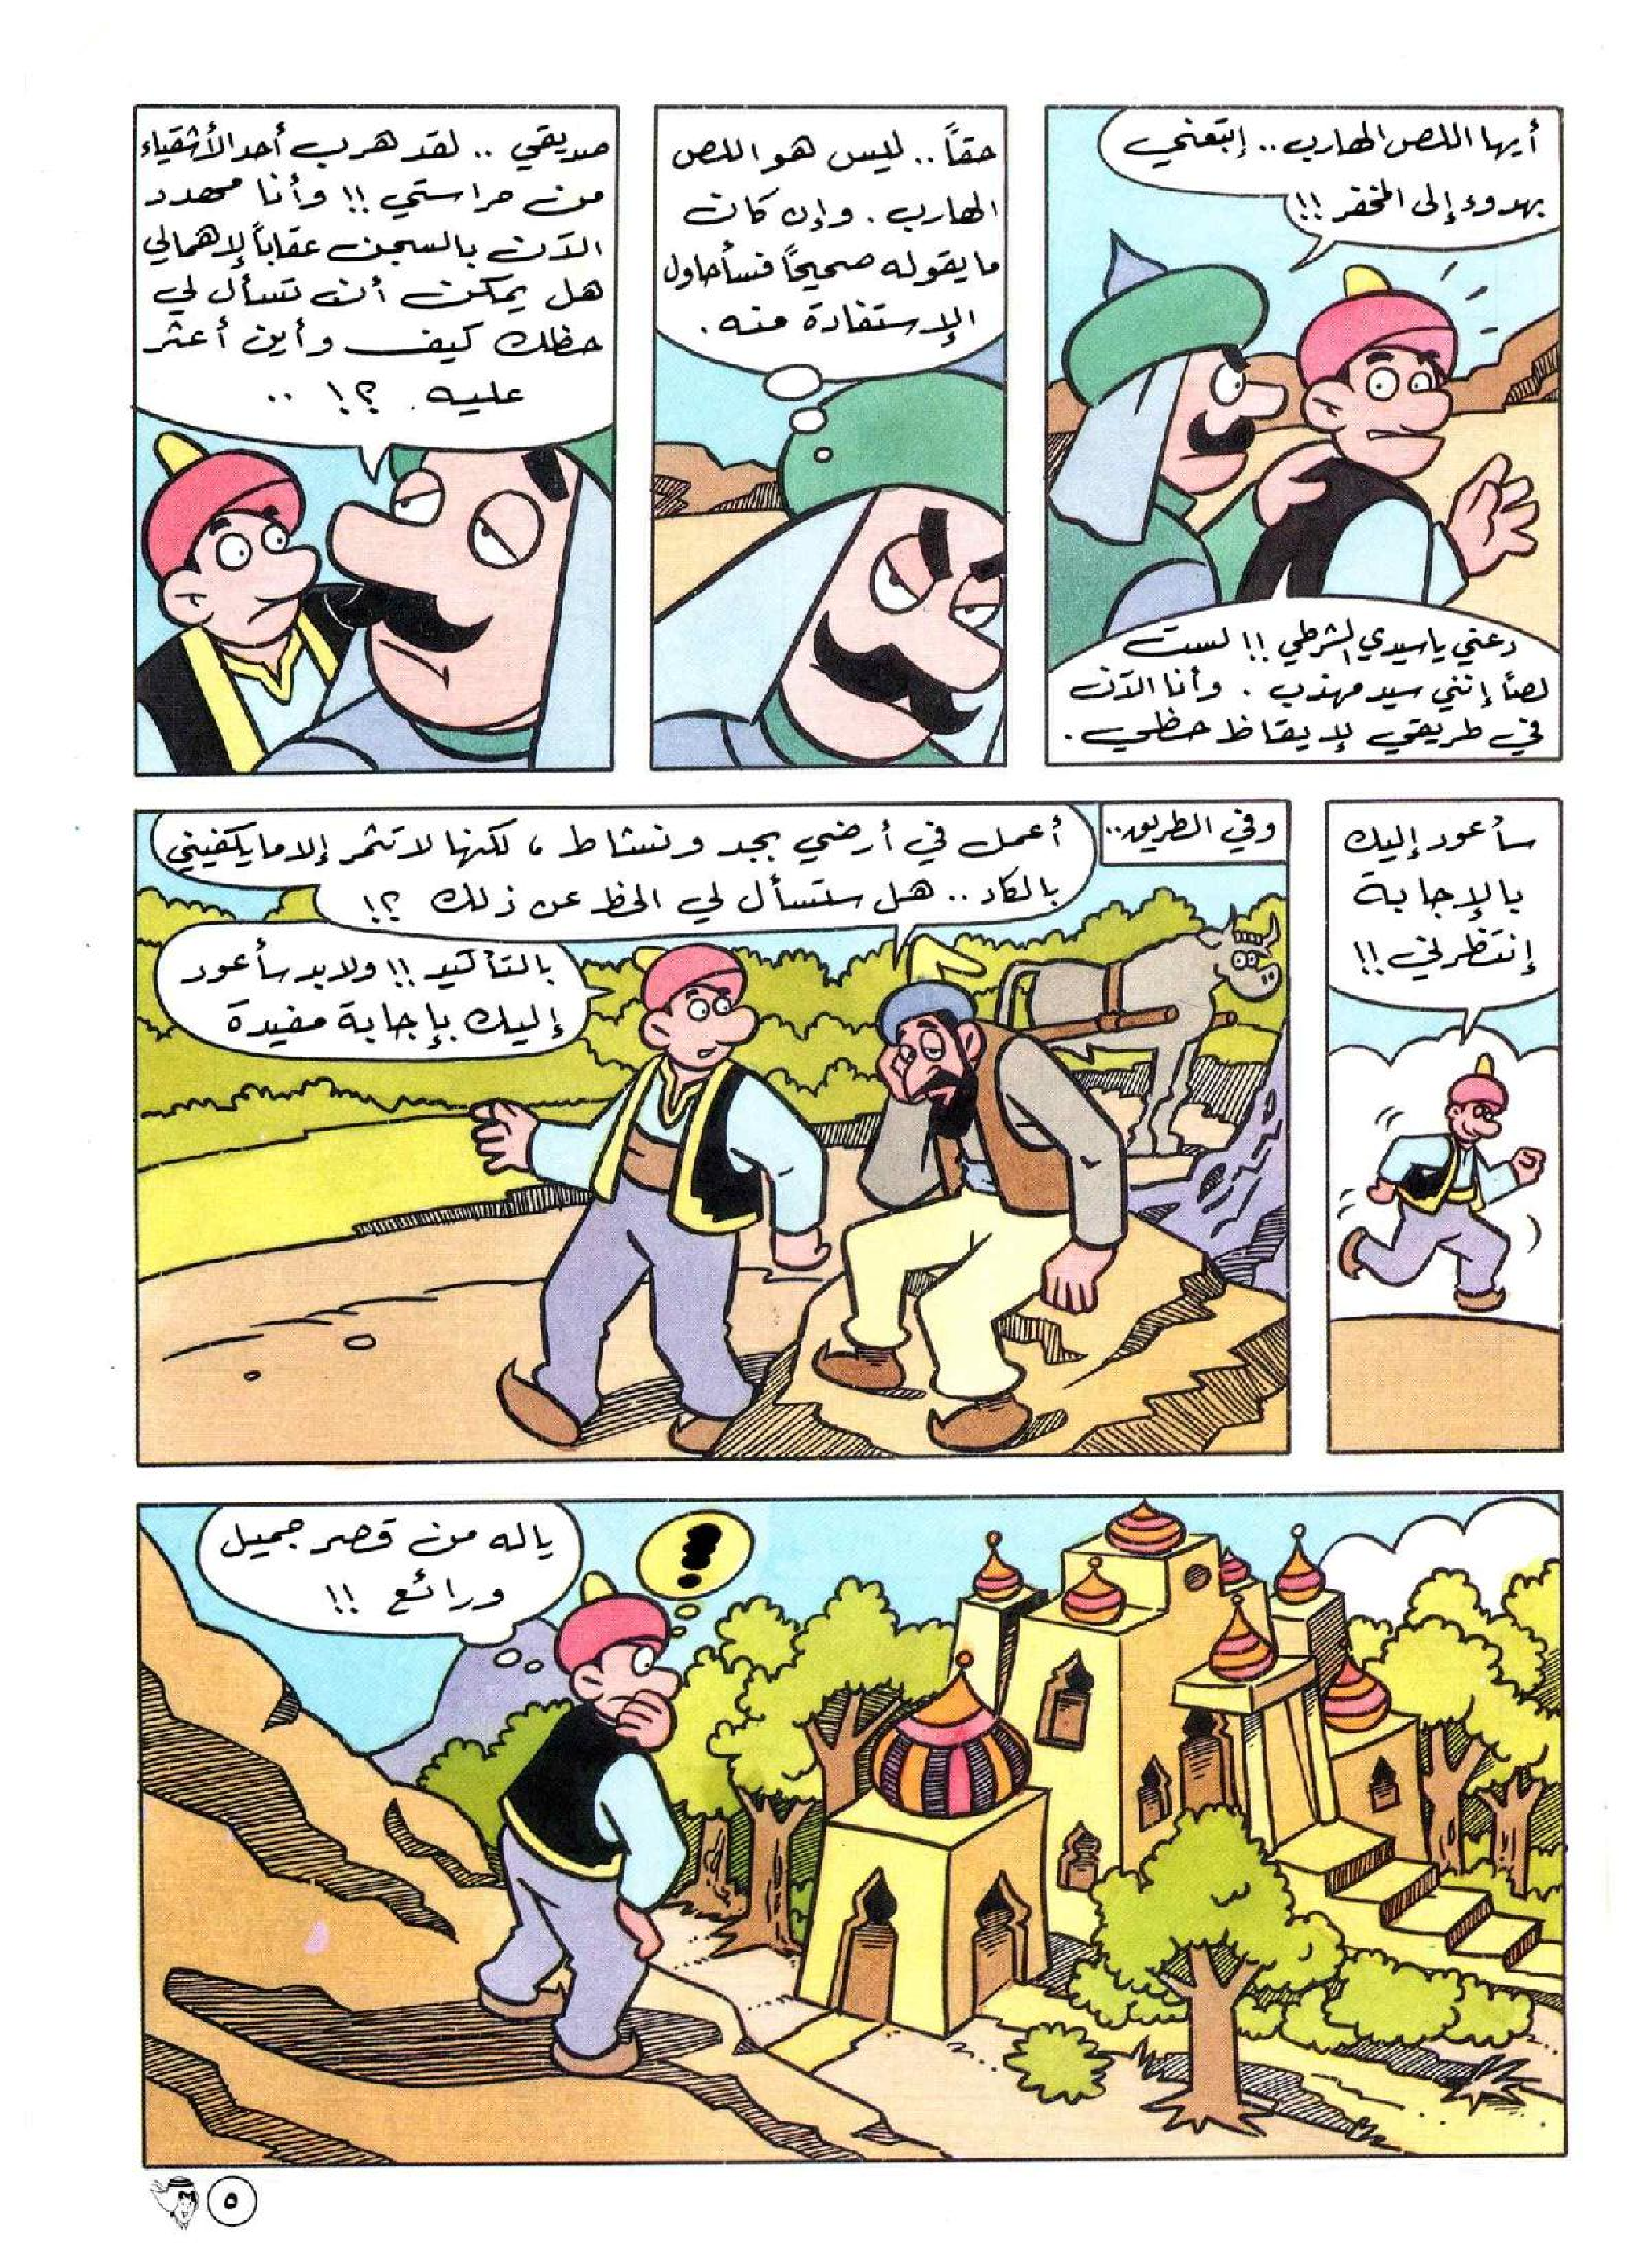 أيها اللص الهارب.. إتبعني
بهدوء إلى المخفر !!
دعني يا سيدي الشرطي !! لست
لصاً إنني سيد مهذب . وأنا الآن
في طريقي لإيقاظ حظي .
حقاً.. ليس هو اللص
الهارب . وإن كان
ما يقوله صحيحاً فسأحاول
الإستفادة منه .
صديقي .. لقد هرب أحد الأشقياء
من حراستي !! وأنا مهدد
الآن بالسجن عقاباً لإهمالي
هل يمكن أن تسأل لي
حظك كيف وأين أعثر
عليه ؟! ..
سأعود إليك
بالإجابة
إنتظرني !!
وفي الطريق..
أعمل في أرضي بجد ونشاط ، لكنها لا تثمر إلا ما يكفيني
بالكاد .. هل ستسأل لي الحظ عن ذلك ؟!
بالتأكيد !! ولابد سأعود
إليك بإجابة مفيدة
ياله من قصر جميل
ورائع !!
!
٥